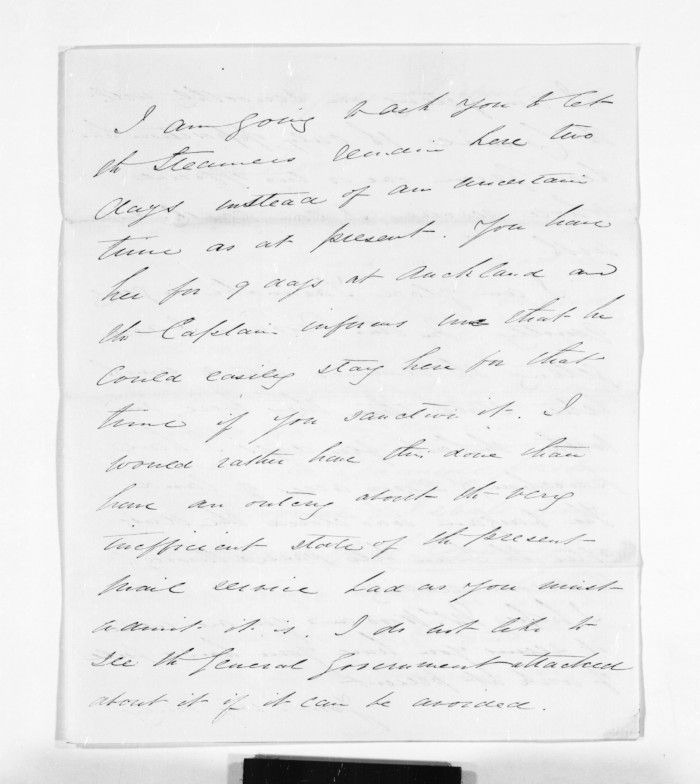 I am going to ask you to let
the steamers remain here two
days instead of an uncertain
time as at present. You have
her for 9 days at Auckland and
the Captain informs me that he
could easily stay here for that
time if you sanction it. I
would rather have this done than
have an outcry about the very
inefficient state of the present
mail service bad as you must
admit it is. I do not like to
see the General Government attacked
about it if it can be avoided.